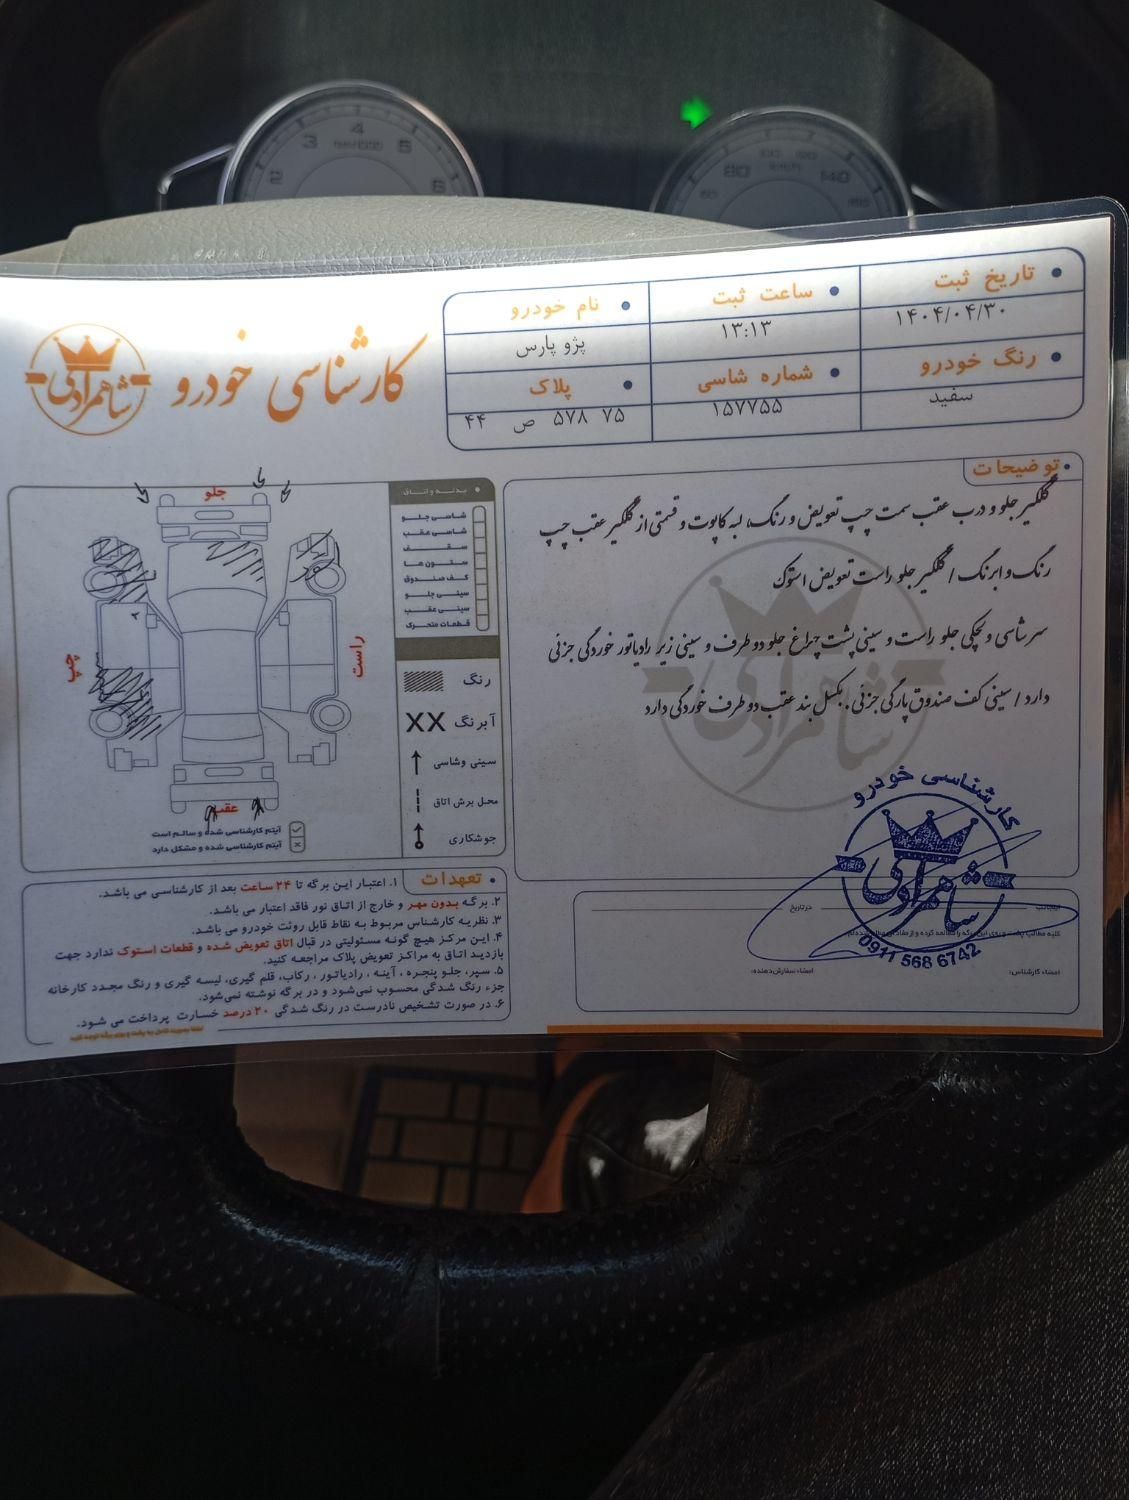 3
4
5
2
6
80
140
کارشناسی خودرو
شاهمرادی
تاریخ ثبت
ساعت ثبت
نام خودرو
۱۴۰۴/۰۴/۳۰
۱۳:۱۳
پژو پارس
رنگ خودرو
شماره شاسی
پلاک
سفید
۱۵۷۷۵۵
۷۵ ۵۷۸ ص ۴۴
توضیحات
گلگیر جلو و درب عقب سمت چپ تعویض و رنگ، لبه کاپوت و قسمتی از گلگیر عقب چپ
رنگ و ابرنگ / گلگیر جلو راست تعویض استوک
سر شاسی و لچکی جلو راست و سینی پشت چراغ جلو دو طرف و سینی زیر رادیاتور خوردگی جزئی
دارد / سینی کف صندوق پارگی جزئی. بکسل بند عقب دو طرف خوردگی دارد
شاهمرادی
جلو
چپ
راست
عقب
بدنه و اتاق
شاسی جلو
شاسی عقب
سقف
ستون ها
کف صندوق
سینی جلو
سینی عقب
قطعات متحرک
رنگ
XX آبرنگ
سینی وشاسی
محل برش اتاق
جوشکاری
آیتم کارشناسی شده و سالم است
آیتم کارشناسی شده و مشکل دارد
تعهدات
۱. اعتبار این برگه تا ۲۴ ساعت بعد از کارشناسی می باشد.
۲. برگه بدون مهر و خارج از اتاق نور فاقد اعتبار می باشد.
۳. نظریه کارشناس مربوط به نقاط قابل روئت خودرو می باشد.
۴. این مرکز هیچ گونه مسئولیتی در قبال اتاق تعویض شده و قطعات استوک ندارد جهت
بازدید اتاق به مراکز تعویض پلاک مراجعه کنید.
۵. سپر، جلو پنجره، آینه، رادیاتور، رکاب، قلم گیری، لیسه گیری و رنگ مجدد کارخانه
جزء رنگ شدگی محسوب نمی‌شود و در برگه نوشته نمی‌شود.
۶. در صورت تشخیص نادرست در رنگ شدگی ۲۰ درصد خسارت پرداخت می شود.
اینجانب
در تاریخ
امضاء کارشناس:
امضاء سفارش‌دهنده:
کارشناسی خودرو
شاهمرادی
0911 568 6742